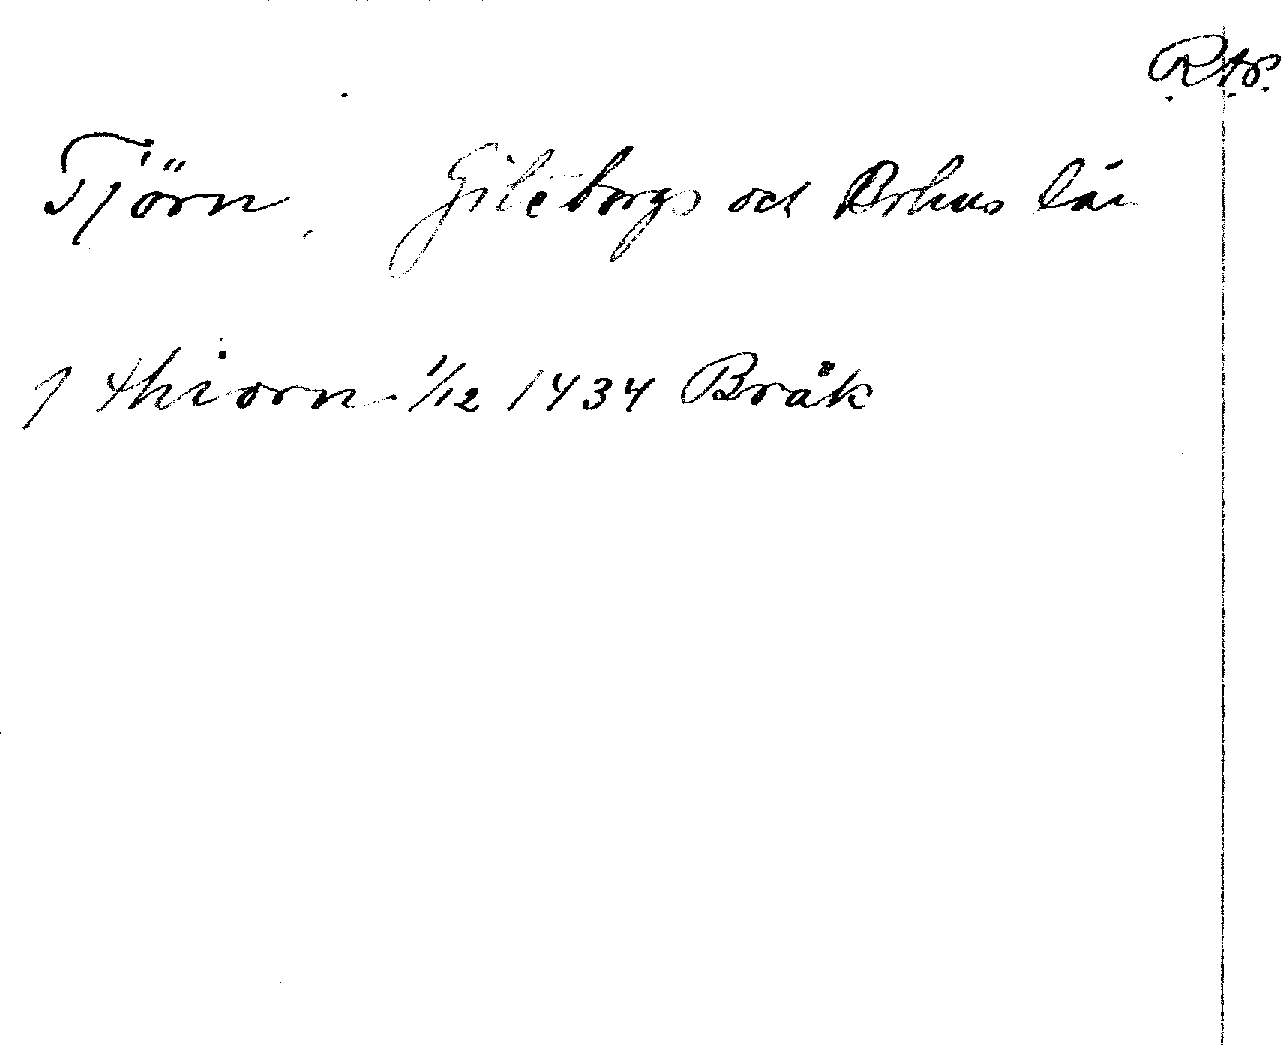 Tjörn, Göteborgs och Bohus län
j thiorn 1/12 1434 Bråk